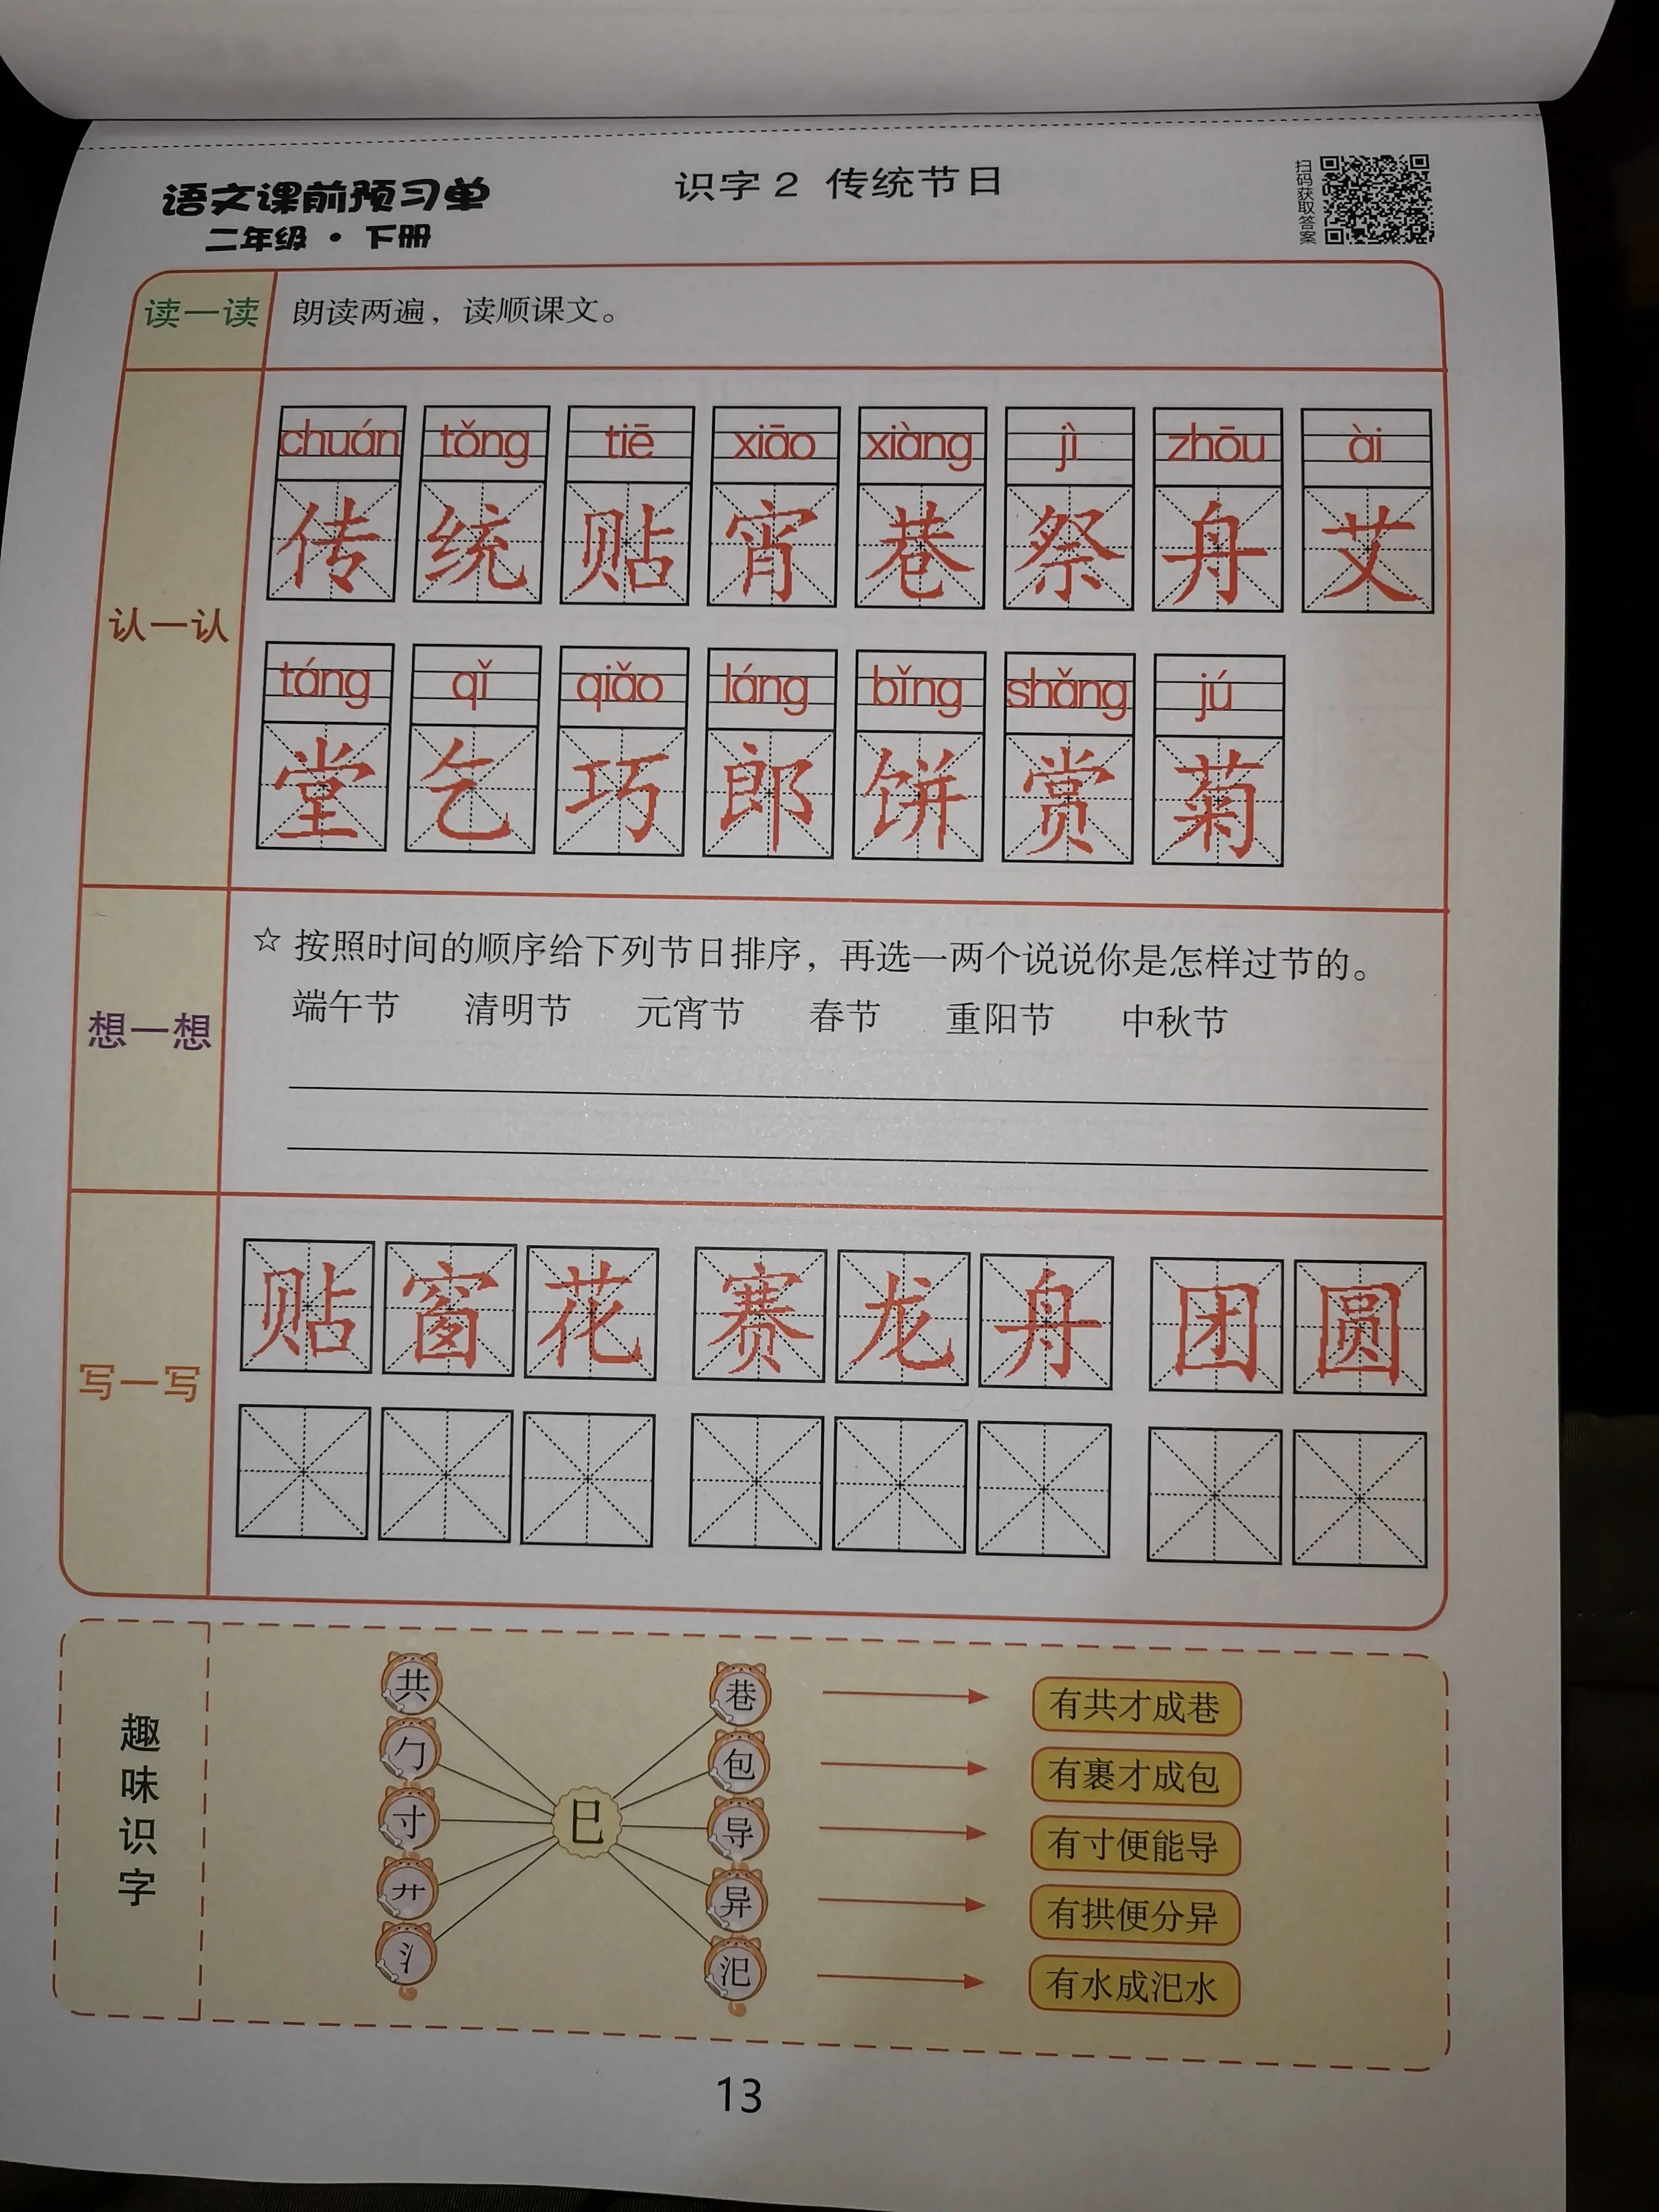 语文课前预习单
二年级·下册
识字2 传统节日
扫码获取答案
读一读
朗读两遍，读顺课文。
认一认
chuán tǒng tiē xiāo xiàng jì zhōu ài
传 统 贴 宵 巷 祭 舟 艾
táng qǐ qiǎo láng bǐng shǎng jú
堂 乞 巧 郎 饼 赏 菊
想一想
☆ 按照时间的顺序给下列节日排序，再选一两个说说你是怎样过节的。
端午节 清明节 元宵节 春节 重阳节 中秋节
写一写
贴窗花 赛龙舟 团圆
趣味识字
共 巷 有共才成巷
勹 包 有裹才成包
寸 巳 导 有寸便能导
廾 异 有拱便分异
氵 汜 有水成汜水
13